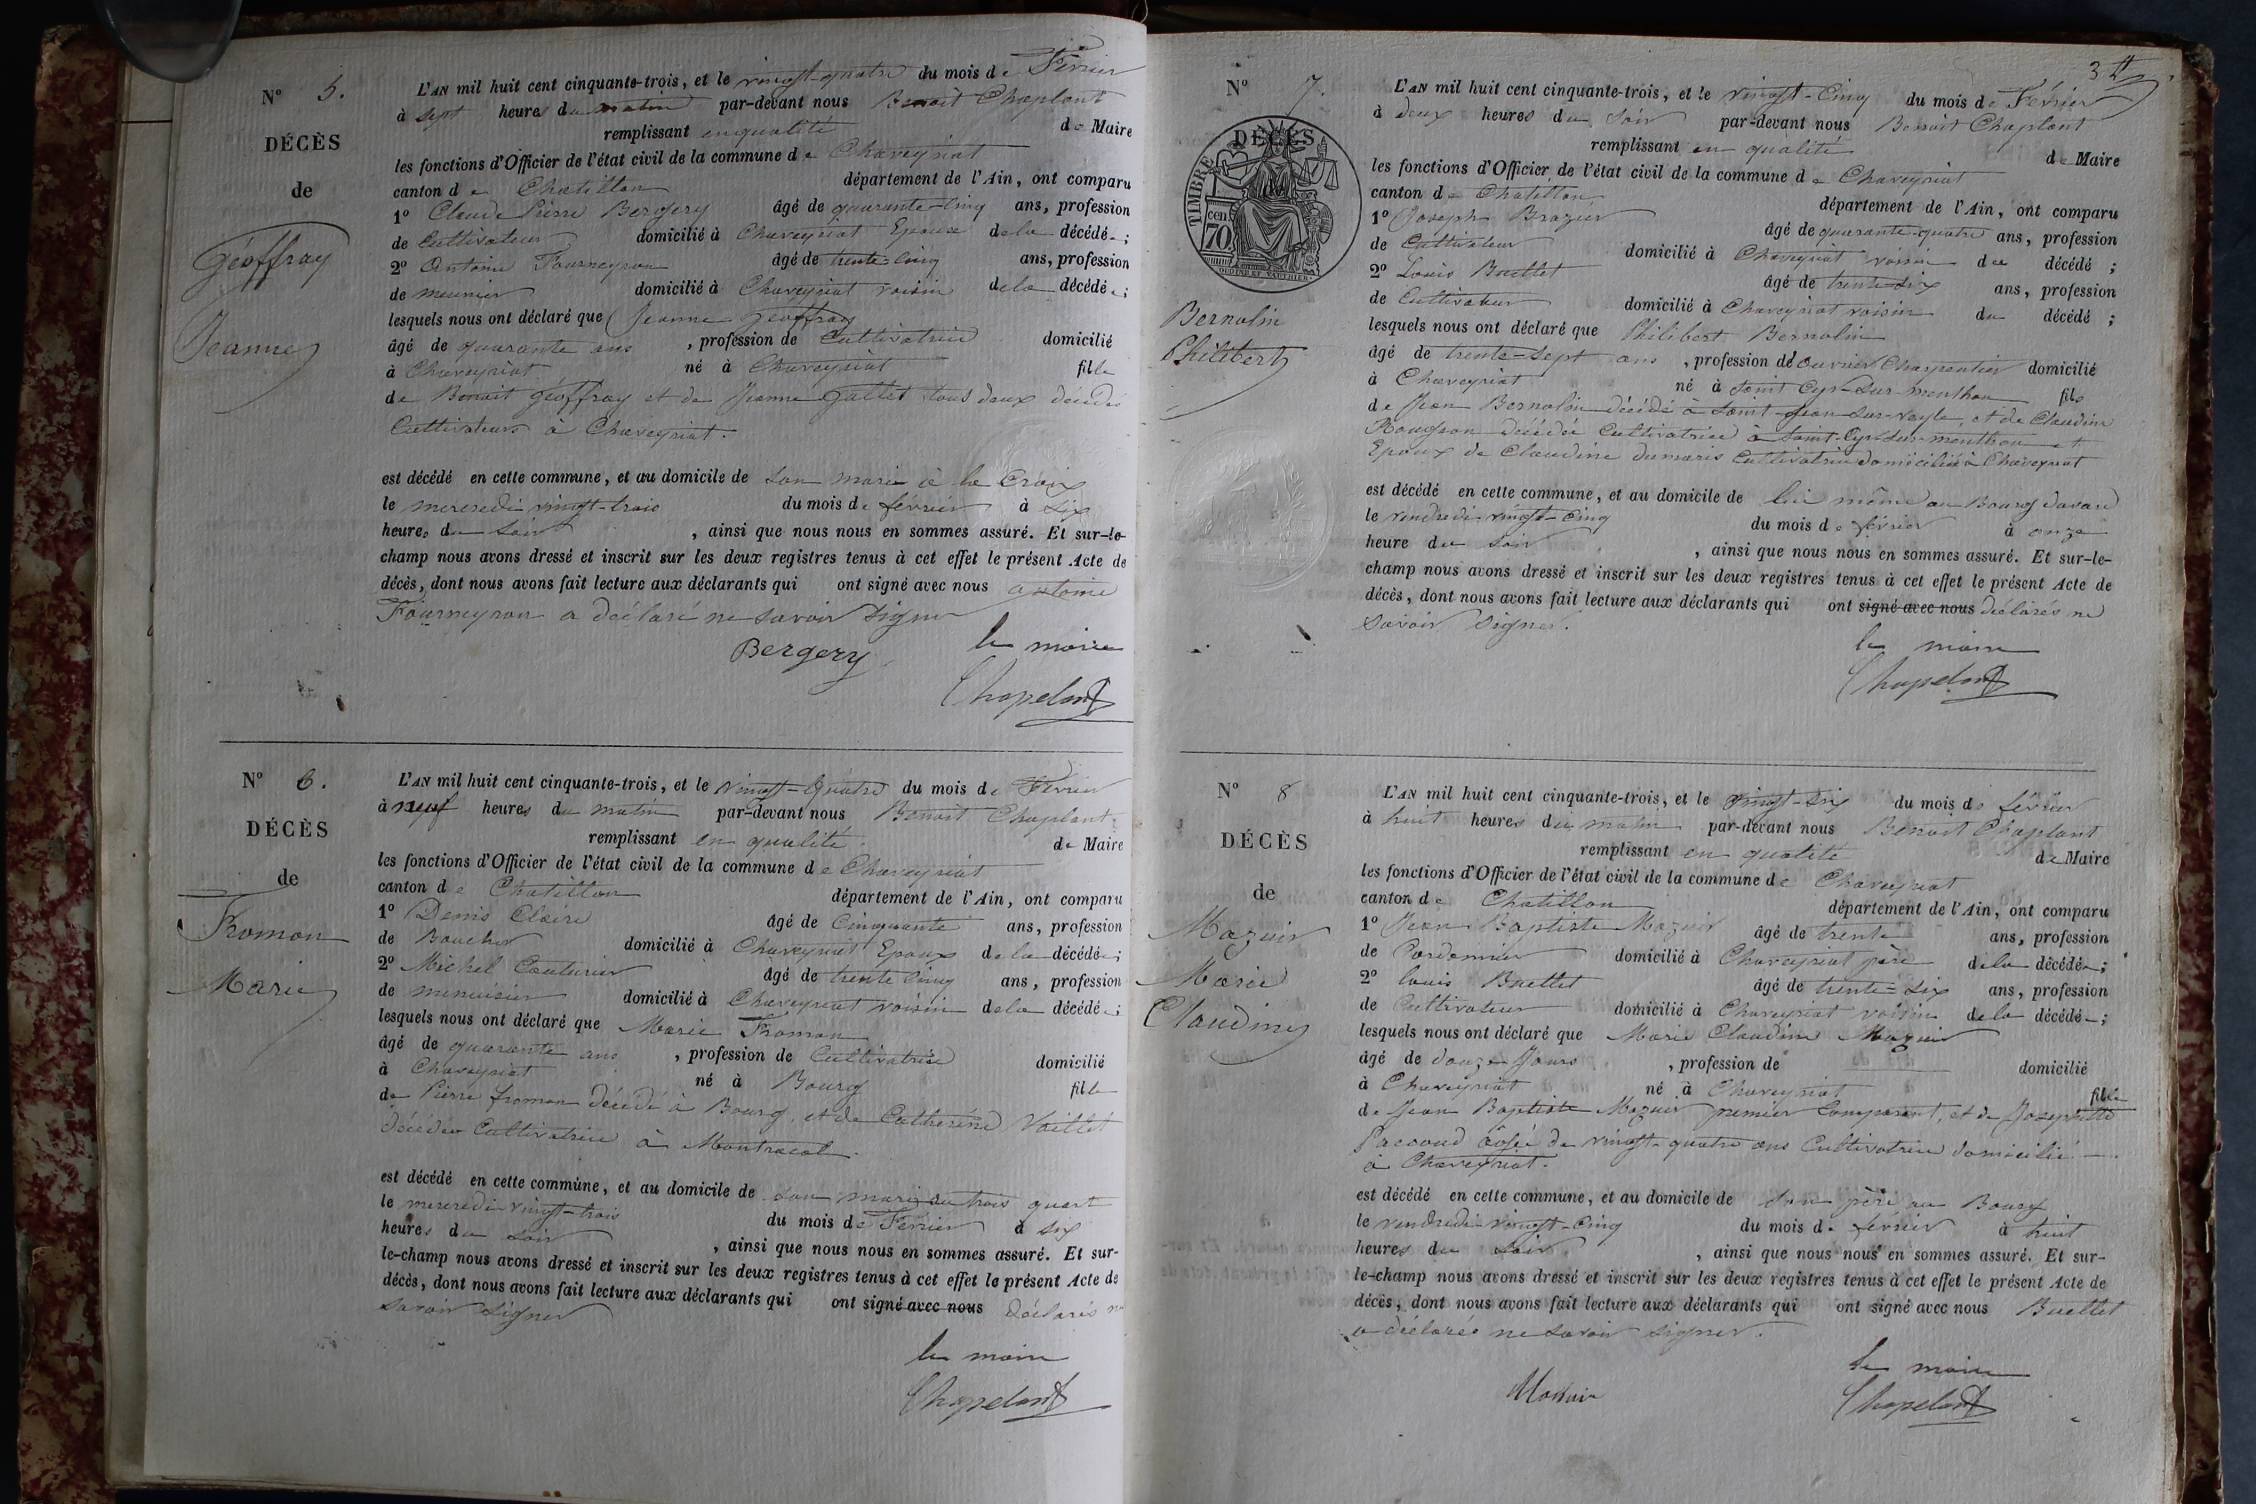 N° 5.
DÉCÈS
de
Géoffray
Jeanne
L'AN mil huit cent cinquante-trois, et le vingt-quatre du mois de Février
à sept heures du matin par-devant nous Benoit Chaplant
remplissant en qualité de Maire
les fonctions d'Officier de l'état civil de la commune de Chaveyriat
canton de Chatillon département de l'Ain, ont comparu
1° Claude Pierre Bergery âgé de quarante-cinq ans, profession
de Cultivateur domicilié à Chaveyriat Epoux de la décédée;
2° Antoine Fourneyron âgé de trente-cinq ans, profession
de meunier domicilié à Chaveyriat voisin de la décédée;
lesquels nous ont déclaré que Jeanne Géoffray
âgé de quarante ans, profession de Cultivatrice domicilié
à Chaveyriat né à Chaveyriat fille
de Benoit Géoffray et de Jeanne Gallet tous deux décédés
Cultivateurs à Chaveyriat.
est décédé en cette commune, et au domicile de son mari à la Croix
le mercredi vingt-trois du mois de février à six
heures du soir, ainsi que nous nous en sommes assuré. Et sur-le-
champ nous avons dressé et inscrit sur les deux registres tenus à cet effet le présent Acte de
décès, dont nous avons fait lecture aux déclarants qui ont signé avec nous antoine
Fourneyron a déclaré ne savoir signer
le maire
Bergery
Chapelant
N° 6.
DÉCÈS
de
Fromon
Marie
L'AN mil huit cent cinquante-trois, et le vingt-Quatre du mois de Février
à neuf heures du matin par-devant nous Benoit Chaplant
remplissant en qualité de Maire
les fonctions d'Officier de l'état civil de la commune de Chaveyriat
canton de Chatillon département de l'Ain, ont comparu
1° Denis Claire âgé de Cinquante ans, profession
de Boucher domicilié à Chaveyriat Epoux de la décédée;
2° Michel Couturier âgé de trente cinq ans, profession
de menuisier domicilié à Chaveyriat voisin de la décédée;
lesquels nous ont déclaré que Marie Fromon
âgé de quarante ans, profession de Cultivatrice domicilié
à Chaveyriat né à Bourg fille
de Pierre fromon décédé à Bourg, et de Catherine Vaillet
décédée Cultivatrice à Montracol.
est décédé en cette commune, et au domicile de son mari au trois quart
le mercredi vingt-trois du mois de Février à six
heures du soir, ainsi que nous nous en sommes assuré. Et sur-
le-champ nous avons dressé et inscrit sur les deux registres tenus à cet effet le présent Acte de
décès, dont nous avons fait lecture aux déclarants qui ont signé avec nous déclarés ne
savoir signer
le maire
Chapelant
3
N° 7.
DÉCÈS
TIMBRE
70 cen.
Bernolin
Philibert
L'AN mil huit cent cinquante-trois, et le vingt-Cinq du mois de Février
à deux heures du soir par-devant nous Benoit Chaplant
remplissant en qualité de Maire
les fonctions d'Officier de l'état civil de la commune de Chaveyriat
canton de Chatillon département de l'Ain, ont comparu
1° Joseph Brazier âgé de quarante-quatre ans, profession
de Cultivateur domicilié à Chaveyriat voisin du décédé;
2° Louis Buellet âgé de trente-six ans, profession
de Cultivateur domicilié à Chaveyriat voisin du décédé;
lesquels nous ont déclaré que Philibert Bernolin
âgé de trente-sept ans, profession de ouvrier Charpentier domicilié
à Chaveyriat né à Saint Cyr-sur-menthon fils
de Jean Bernolin décédé à Saint-Jean-sur-veyle, et de Claudine
décédée Cultivatrice à Saint-Cyr-sur-menthon et
Epoux de Claudine dumaris Cultivatrice domiciliée à Chaveyriat
est décédé en cette commune, et au domicile de lui même au Bourg
le vendredi vingt-cinq du mois de février à onze
heure du soir, ainsi que nous nous en sommes assuré. Et sur-le-
champ nous avons dressé et inscrit sur les deux registres tenus à cet effet le présent Acte de
décès, dont nous avons fait lecture aux déclarants qui ont signé avec nous déclarés ne
savoir signer.
le maire
Chapelant
N° 8
DÉCÈS
de
Mazuir
Marie
Claudine
L'AN mil huit cent cinquante-trois, et le vingt-six du mois de février
à huit heures du matin par-devant nous Benoit Chaplant
remplissant en qualité de Maire
les fonctions d'Officier de l'état civil de la commune de Chaveyriat
canton de Chatillon département de l'Ain, ont comparu
1° Jean Baptiste Mazuir âgé de trente ans, profession
de Cordonnier domicilié à Chaveyriat père de la décédée;
2° louis Buellet âgé de trente-six ans, profession
de Cultivateur domicilié à Chaveyriat voisin de la décédée;
lesquels nous ont déclaré que Marie Claudine Mazuir
âgé de douze Jours, profession de domicilié
à Chaveyriat né à Chaveyriat fille
de Jean Baptiste Mazuir premier Comparant, et de Josephtte
âgée de vingt-quatre ans Cultivatrice domicilié
à Chaveyriat.
est décédé en cette commune, et au domicile de son père au Bourg
le vendredi vingt-cinq du mois de février à huit
heures du soir, ainsi que nous nous en sommes assuré. Et sur-
le-champ nous avons dressé et inscrit sur les deux registres tenus à cet effet le présent Acte de
décès, dont nous avons fait lecture aux déclarants qui ont signé avec nous Buellet
a déclarés ne savoir signer.
le maire
Chapelant